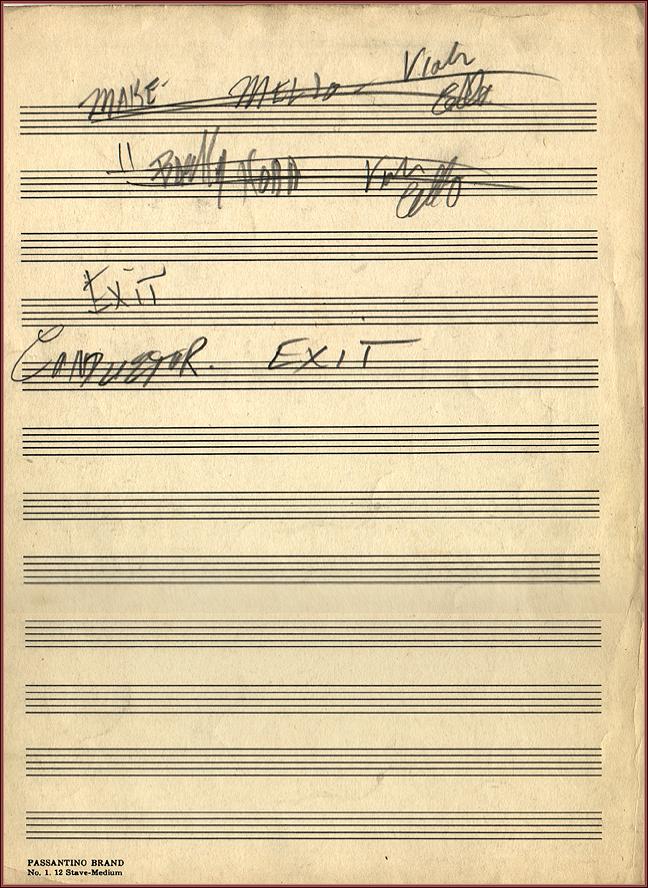 MAKE MELLO Viola
Cello
" Viola
Cello
EXIT
CONDUCTOR. EXIT
PASSANTINO BRAND
No. 1. 12 Stave-Medium